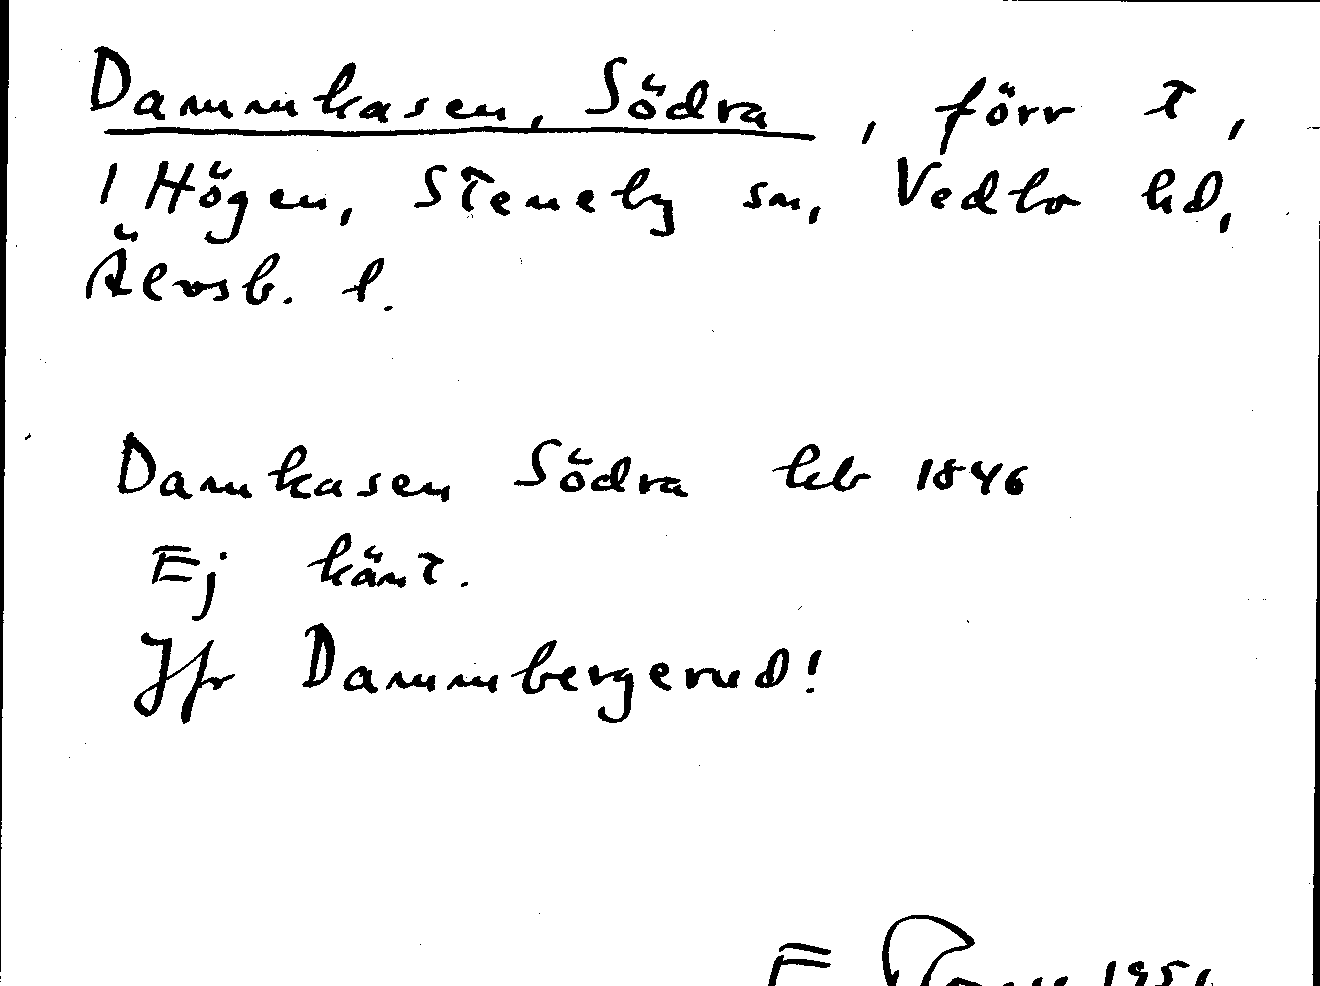 Dammkasen, Södra, förr t,
1 Högen, Steneby sn, Vedbo hd,
Älvsb. l.
Damkasen Södra kb 1846
Ej känt.
Jfr Dammbergerud!
E